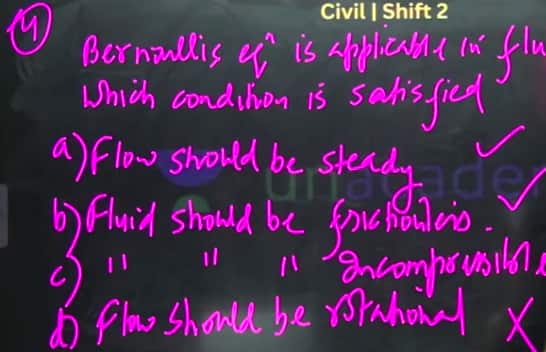 Civil | Shift 2
4 Bernoullis eqn is applicable in flu
which condition is satisfied
a) Flow should be steady ✓
b) Fluid should be frictionless. ✓
c) " " " Incompressible
d) flow should be rotational X
unacade